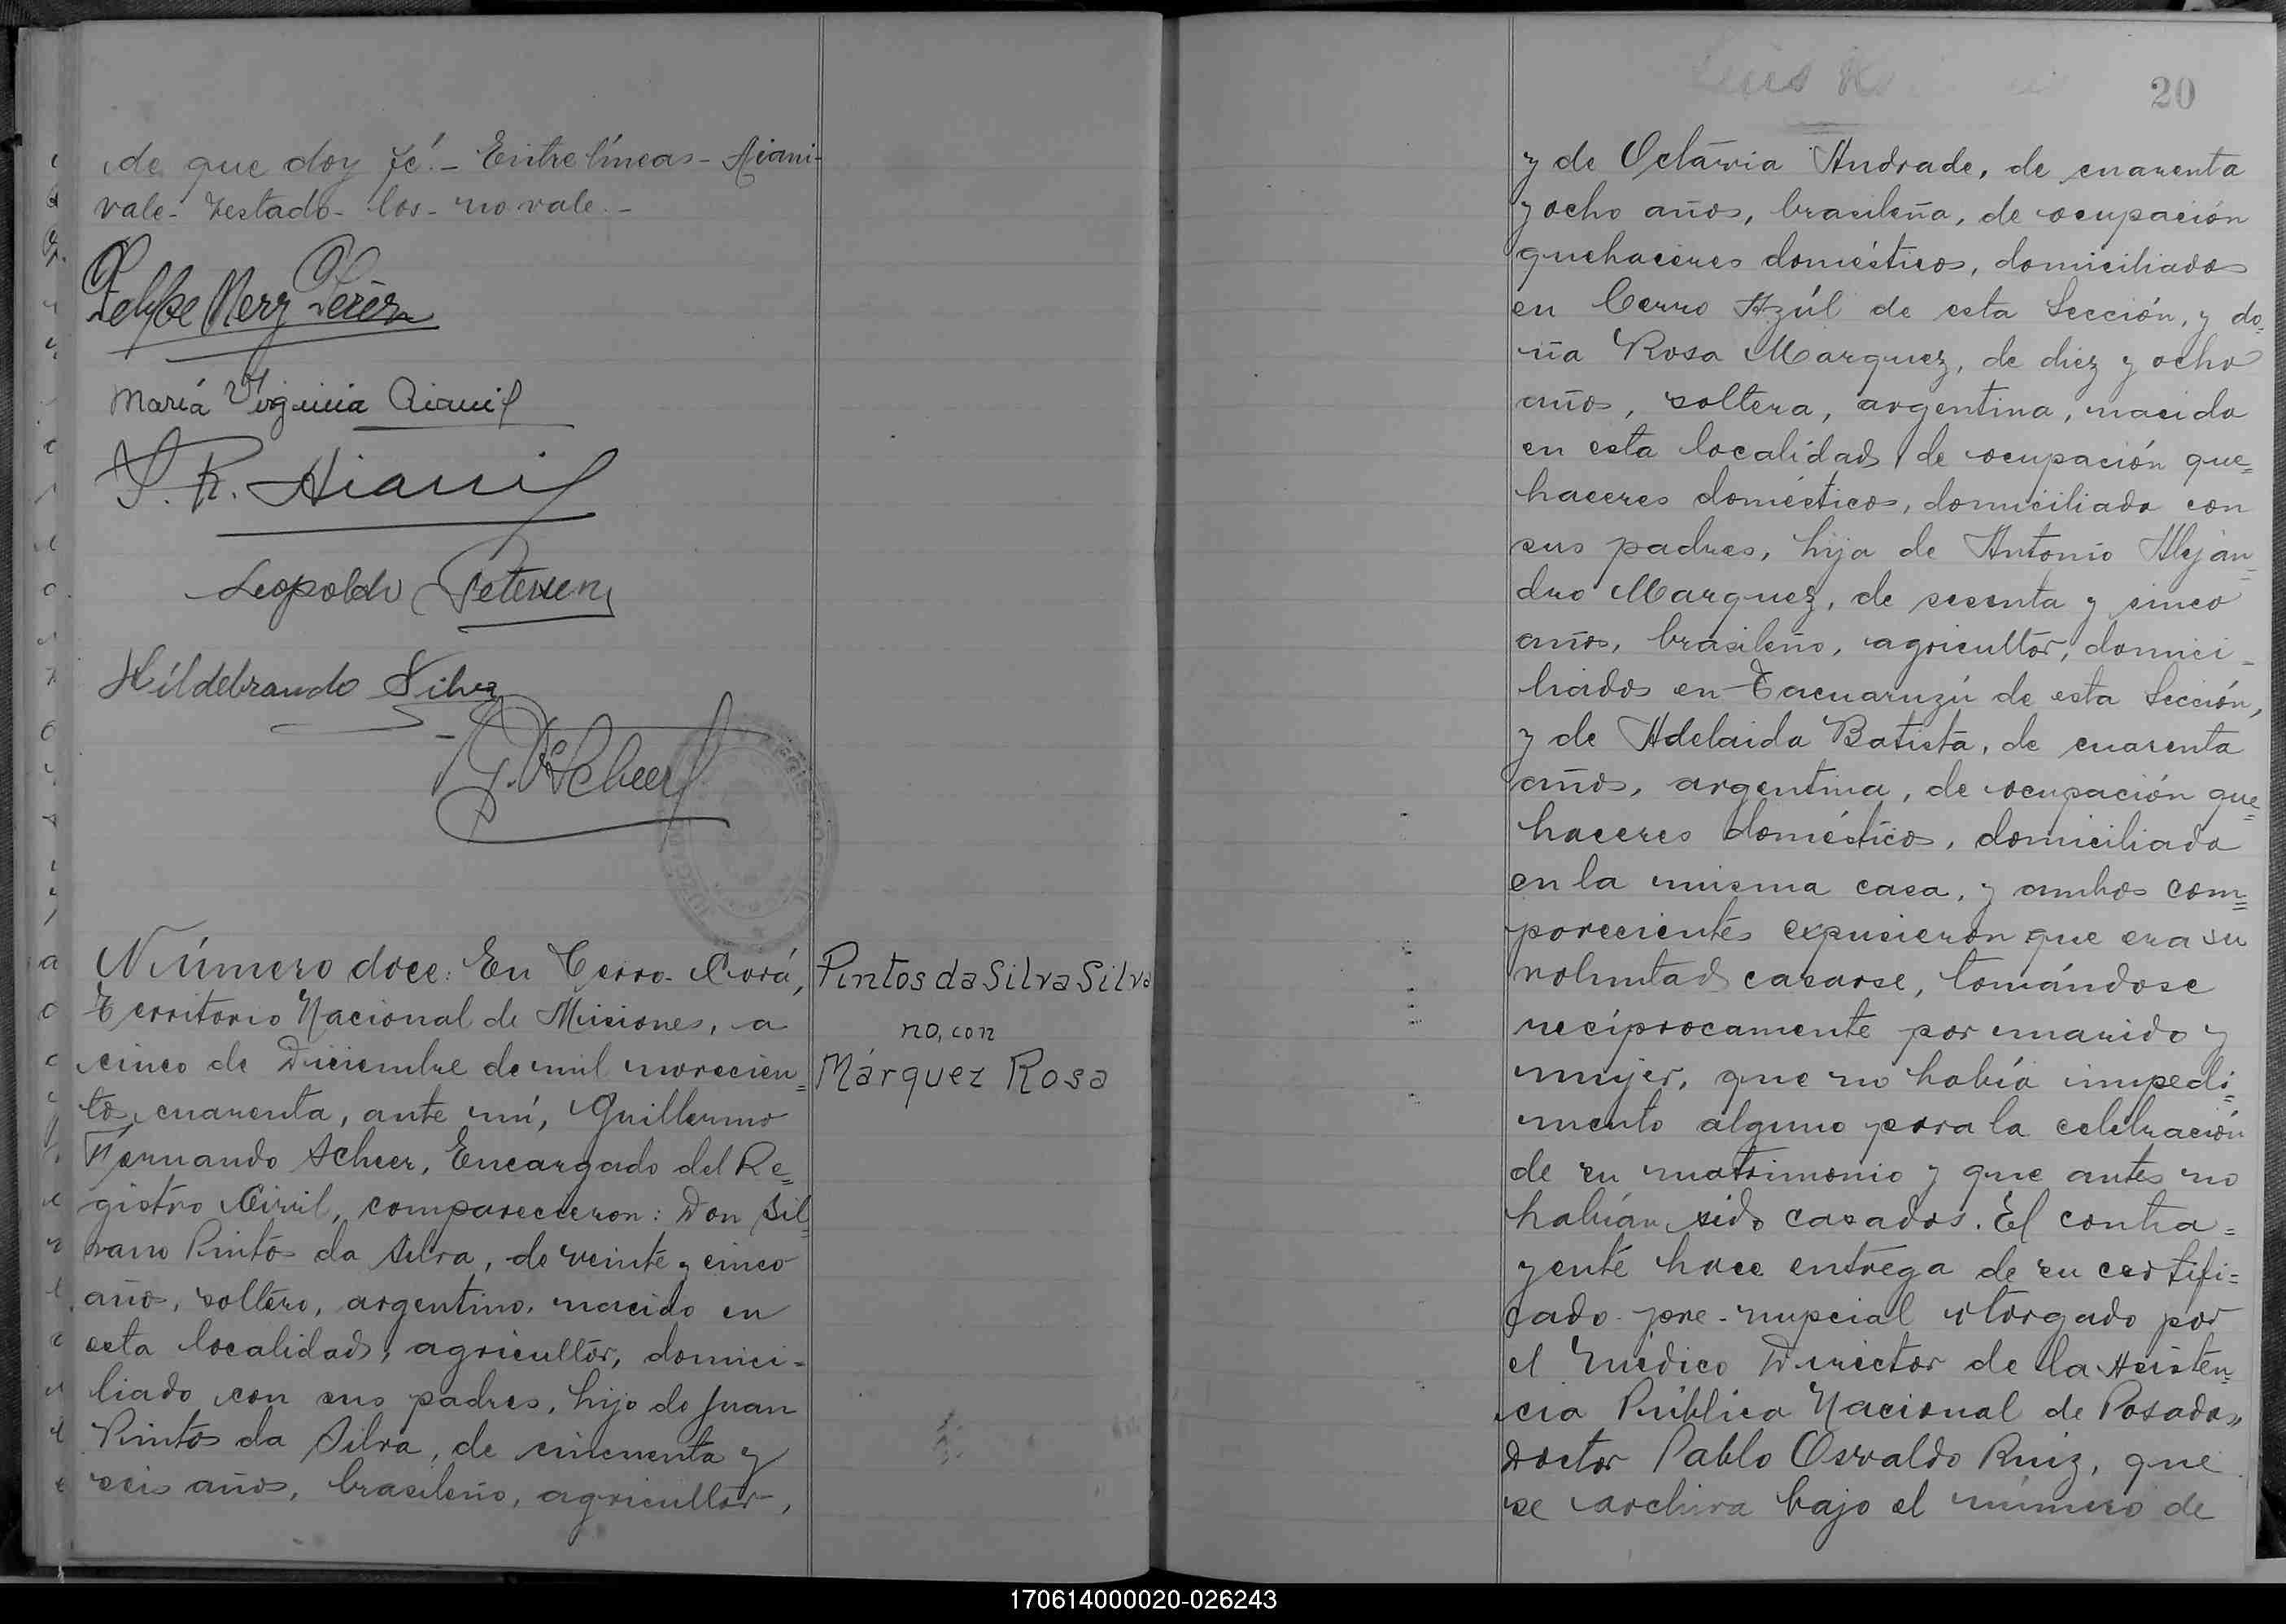 de que doy fé.- Entre líneas- Aiani-
vale- Testado- los- no vale.-
Felipe Nery Pérez
María Virginia Aiani
S. R. Aiani
Leopoldo Petersen
Hildebrando Silva
G. F. Scheer
Número doce: En Cerro-Corá,
Territorio Nacional de Misiones, a
cinco de Diciembre de mil novecien=
tos cuarenta, ante mí, Guillermo
Fernando Scheer, Encargado del Re=
gistro Civil, comparecieron: Don Sil=
vano Pintos da Silva, de veinte y cinco
años, soltero, argentino, nacido en
esta localidad, agricultor, domici=
liado con sus padres, hijo de Juan
Pintos da Silva, de cincuenta y
seis años, brasileño, agricultor,
Pintos da Silva Silva
no, con
Márquez Rosa
20
y de Octavia Andrade, de cuarenta
y ocho años, brasileña, de ocupación
quehaceres domésticos, domiciliados
en Cerro Azúl de esta Sección, y do=
ña Rosa Marquez, de diez y ocho
años, soltera, argentina, nacida
en esta localidad, de ocupación que=
haceres domésticos, domiciliada con
sus padres, hija de Antonio Alejan=
dro Marquez, de sesenta y cinco
años, brasileño, agricultor, domici=
liados en Tacuaruzú de esta Sección,
y de Adelaida Batista, de cuarenta
años, argentina, de ocupación que=
haceres domésticos, domiciliada
en la misma casa, y ambos com=
parecientes expusieron que era su
voluntad casarse, tomándose
recíprocamente por marido y
mujer, que no había impedi=
mento alguno para la celebración
de su matrimonio y que antes no
habían sido casados. El contra=
yente hace entrega de su certifi=
cado pre-nupcial otorgado por
el Médico Director de la Asisten=
cia Pública Nacional de Posadas,
Doctor Pablo Osvaldo Ruiz, que
se archiva bajo el número de
170614000020-026243